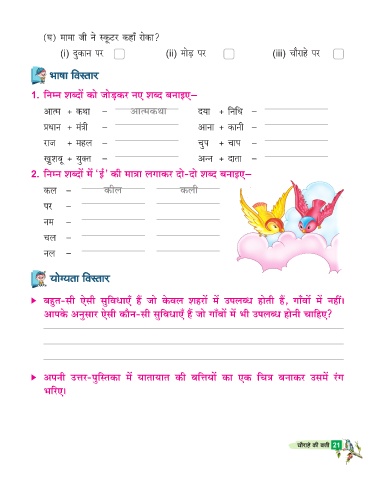 (घ) मामा जी ने स्कूटर कहाँ रोका?
(i) दुकान पर (ii) मोड़ पर (iii) चौराहे पर
भाषा विस्तार
1. निम्न शब्दों को जोड़कर नए शब्द बनाइए–
आत्म + कथा – आत्मकथा दया + निधि –
प्रधान + मंत्री – आना + कानी –
राज + महल – चुप + चाप –
खुशबू + युक्त – अन्न + दाता –
2. निम्न शब्दों में ‘ई’ की मात्रा लगाकर दो-दो शब्द बनाइए–
कल – कील कली
पर –
नम –
चल –
नल –
योग्यता विस्तार
बहुत-सी ऐसी सुविधाएँ हैं जो केवल शहरों में उपलब्ध होती हैं, गाँवों में नहीं।
आपके अनुसार ऐसी कौन-सी सुविधाएँ हैं जो गाँवों में भी उपलब्ध होनी चाहिए?
अपनी उत्तर-पुस्तिका में यातायात की बत्तियों का एक चित्र बनाकर उसमें रंग
भरिए।
चौराहे की बत्ती 21